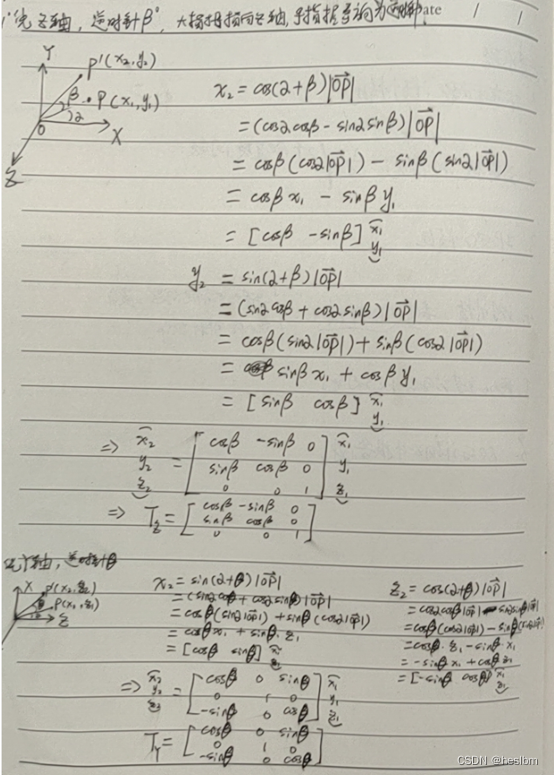 "绕Z轴，逆时针β"，大拇指指向Z轴，手指握写方向为逆时针
Date / /
Y
P'(x₂,y₂)
β P(x₁,y₁)
α
O X
Z
x₂ = cos(α+β)|OP|
= (cosαcosβ - sinαsinβ)|OP|
= cosβ(cosα|OP|) - sinβ(sinα|OP|)
= cosβ x₁ - sinβ y₁
= [cosβ -sinβ] x₁
y₁
y₂ = sin(α+β)|OP|
= (sinαcosβ + cosαsinβ)|OP|
= cosβ(sinα|OP|) + sinβ(cosα|OP|)
= sinβ x₁ + cosβ y₁
= [sinβ cosβ] x₁
y₁
=> x₂ [cosβ -sinβ 0] x₁
y₂ = [sinβ cosβ 0] y₁
z₂ [0 0 1] z₁
=> T_Z = [cosβ -sinβ 0
sinβ cosβ 0
0 0 1]
绕Y轴，逆时针β
X P'(x₂,z₂)
P(x₁,z₁)
Z
x₂ = sin(α+β)|OP|
= (sinαcosβ + cosαsinβ)|OP|
= cosβ(sinα|OP|) + sinβ(cosα|OP|)
= cosβ x₁ + sinβ z₁
= [cosβ sinβ] x₁
z₁
z₂ = cos(α+β)|OP|
= cosαcosβ|OP| - sinαsinβ|OP|
= cosβ(cosα|OP|) - sinβ(sinα|OP|)
= cosβ z₁ - sinβ x₁
= -sinβ x₁ + cosβ z₁
= [-sinβ cosβ] x₁
z₁
=> x₂ [cosβ 0 sinβ] x₁
y₂ = [0 1 0] y₁
z₂ [-sinβ 0 cosβ] z₁
T_Y = [cosβ 0 sinβ
0 1 0
-sinβ 0 cosβ]
CSDN @heslbm